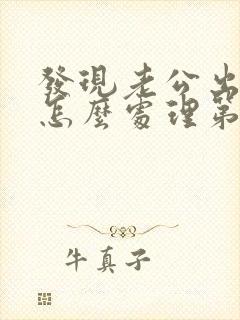 發現老公出
怎麼處理第
牛真子